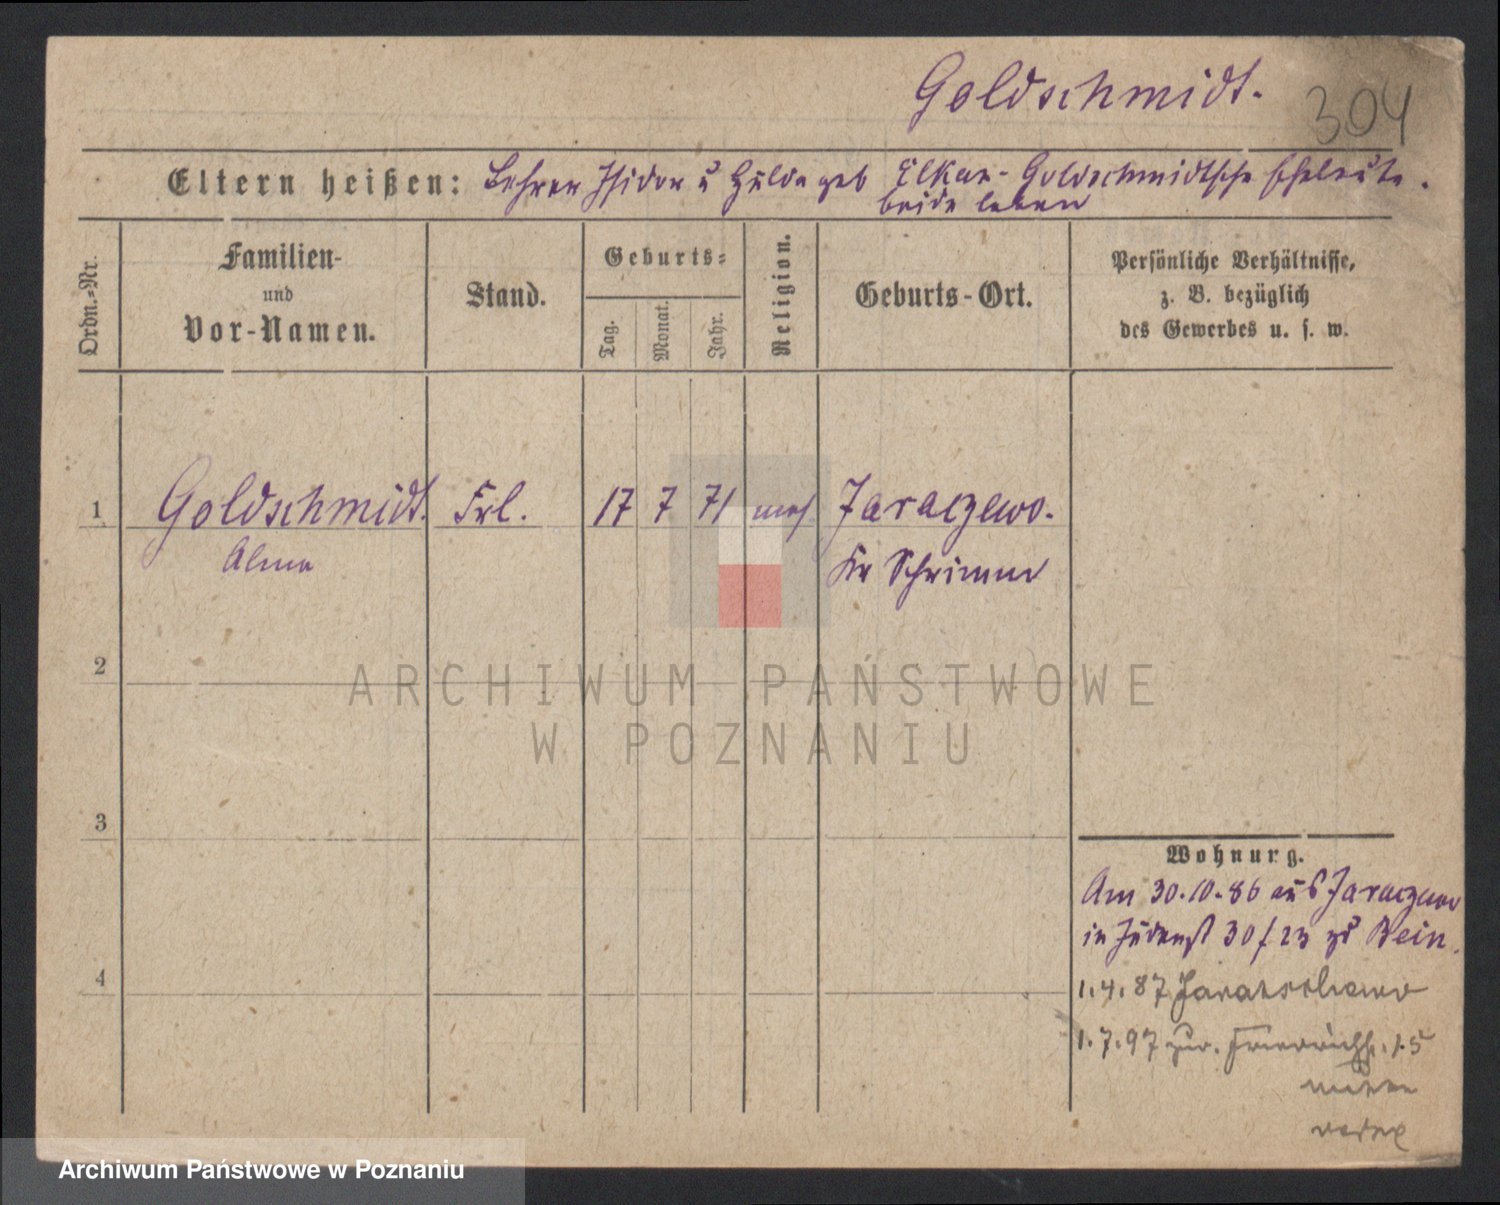 Goldschmidt.
304
Eltern heißen: Lehrer Isidor u Hulda geb Elkan-Goldschmidtsche Eheleute.
beide leben
Ordn.=Nr.
Familien-
und
Vor-Namen.
Stand.
Geburts=
Tag.
Monat.
Jahr.
Religion.
Geburts-Ort.
Persönliche Verhältnisse,
z. B. bezüglich
des Gewerbes u. s. w.
1 Goldschmidt. Frl. 17 7 71 mos. Jaraczewo.
Alma Kr Schrimm
2
ARCHIWUM PAŃSTWOWE
W POZNANIU
3
4
Wohnurg.
Am 30.10.86 aus Jaraczewo
in Judenst 30/23 zu Bein.
1.4.87
1.7.97 zur. Friedrichst. 15
Archiwum Państwowe w Poznaniu